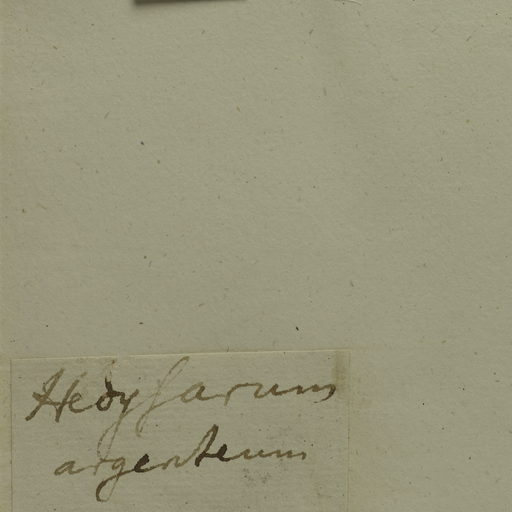 Hedysarum
argenteum